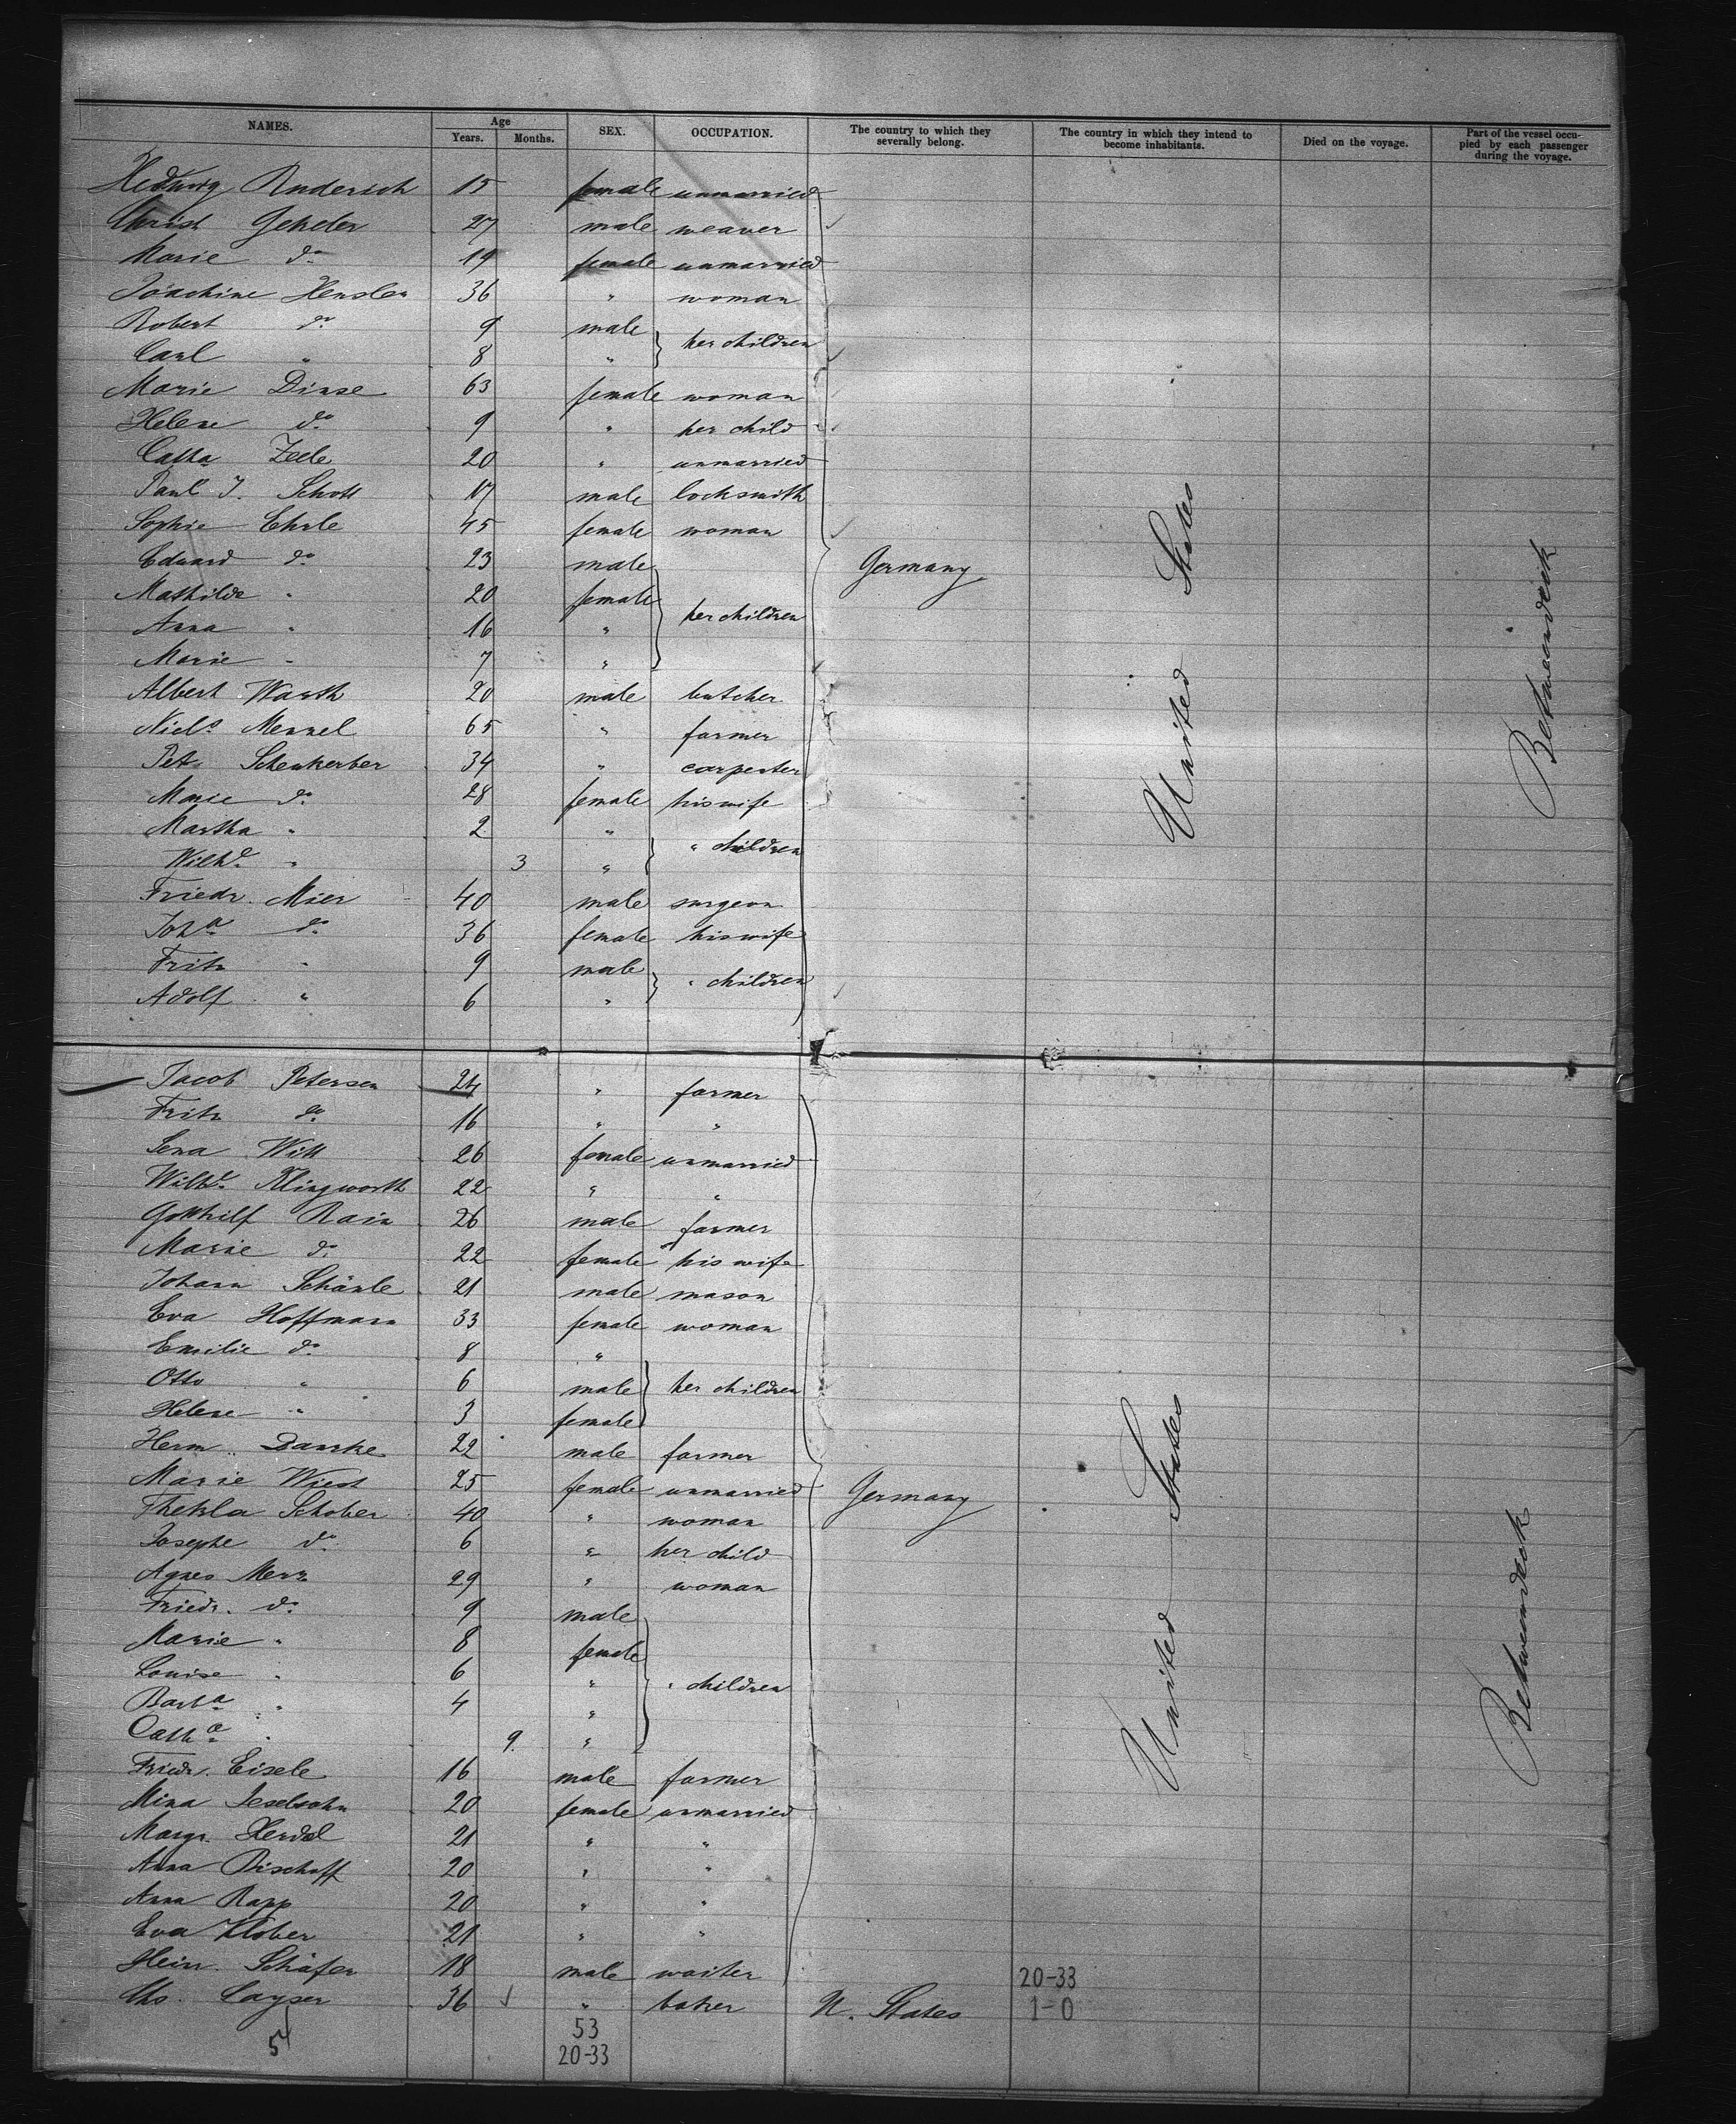 NAMES. Age SEX. OCCUPATION. The country to which they severally belong. The country in which they intend to become inhabitants. Died on the voyage. Part of the vessel occupied by each passenger during the voyage.
Years. Months.
Hedwig 15 female unmarried
Christ 27 male weaver
Marie do 19 female unmarried
36 " woman
Robert do 9 male
her children
Carl " 8 "
Marie Dinse 63 female woman
Helene do 9 " her child
Catha 20 " unmarried
Paul J. Schott 17 male locksmith
Sophie Ehrle 45 female woman
Eduard do 23 male
Germany
Mathilde " 20 female
her children
Anna " 16 "
Marie " 7 "
Albert Warth 20 male butcher
Nicls Mennel 65 " farmer
Pet. Schenkerber 34 " carpenter
Marie do 28 female his wife
Martha " 2 "
" children
Wilhe " 3 "
Friedr. Mier 40 male surgeon
Joha do 36 female his wife
Fritz " 9 male
" children
Adolf " 6 "
United States
Betweendeck
Jacob Petersen 24 " farmer
Fritz do 16 " "
Lena Witt 26 female unmarried
Wilhe Klingworth 22 " "
Gotthilf Rain 26 male farmer
Marie do 22 female his wife
Johann Schänle 21 male mason
Eva Hoffmann 33 female woman
Emilie do 8 "
Otto " 6 male her children
Helene " 3 female
Herm. Danske 22 male farmer
Marie Wiest 25 female unmarried Germany
Thekla Schober 40 " woman
Josephe do 6 " her child
Agnes Merz 29 " woman
Friedr. do 9 male
Marie " 8 female
Louise " 6 " " children
Barba " 4 "
Catha " 9 "
Friedr. Eisele 16 male farmer
Mina Jeselsohn 20 female unmarried
Margr. Herdel 21 " "
Anna Bischoff 20 " "
Anna Rapp 20 " "
Eva Klober 21 " "
Heinr. Schäfer 18 male waiter
United States
Betweendeck
20-33
Chs. Cayser 36 " baker U. States 1-0
54
53
20-33